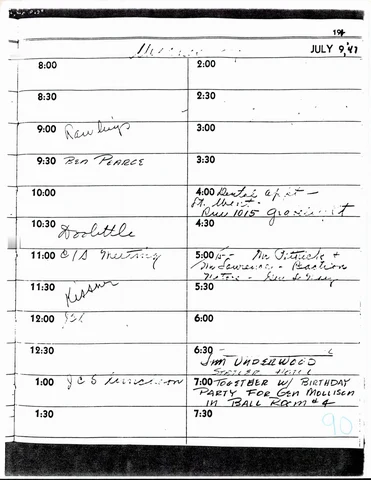 194
JULY 9, '47
8:00
8:30
9:00 Rawlings
9:30 BEN PEARCE
10:00
10:30 Doolittle
11:00 C/S Meeting
11:30 Kissner
12:00
12:30
1:00 JCS Luncheon
1:30
2:00
2:30
3:00
3:30
4:00 Dental apt —
Rm 1015
4:30
5:00 Mr. Patrick +
Mr. Lawrence - Reaction
Motors -
5:30
6:00
6:30 —
JIM UNDERWOOD
STATLER HOTEL
7:00 TOGETHER W/ BIRTHDAY
PARTY FOR GEN MOLLISON
IN BALL ROOM # 4
7:30
90